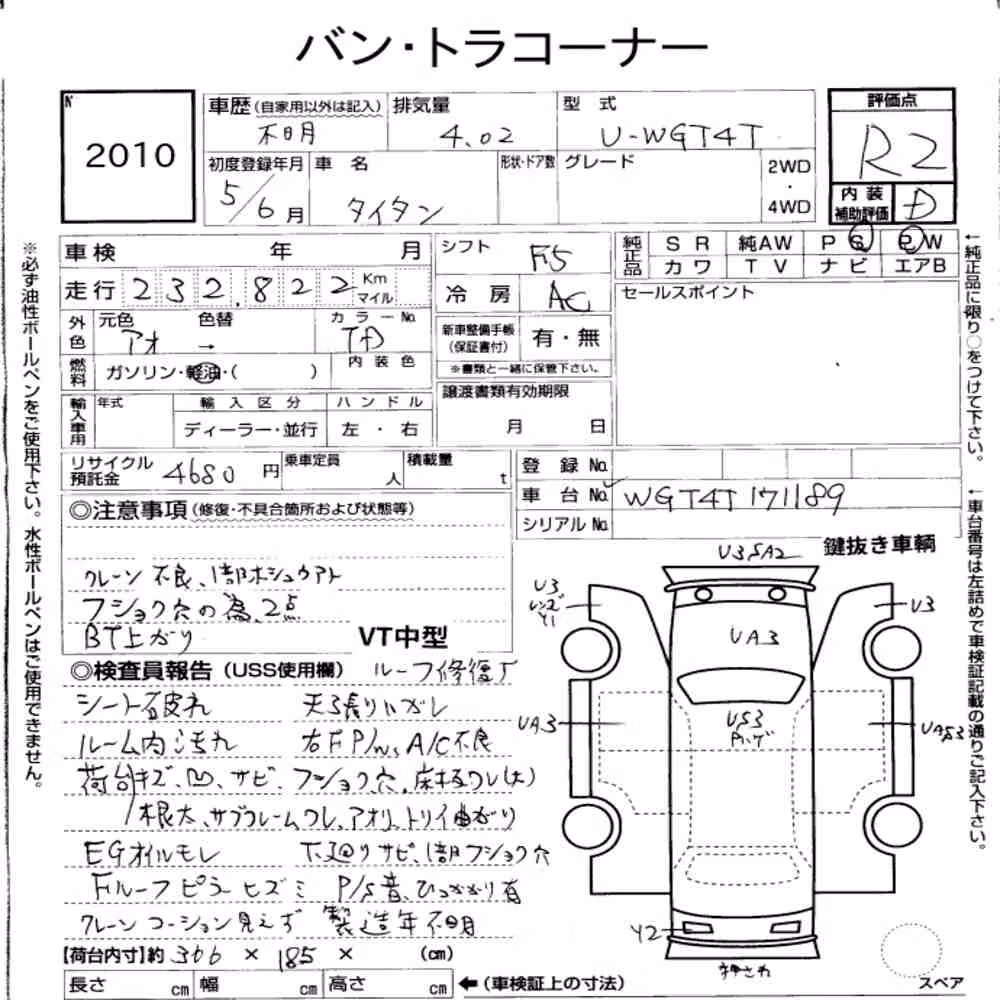 バン・トラコーナー
№
2010
車歴(自家用以外は記入)
不明
排気量
4.02
型 式
U-WGT4T
評価点
R2
初度登録年月
5/6月
車 名
タイタン
形状・ドア数
グレード
2WD
・
4WD
内 装
補助評価
D
車検 年 月
走行 232,822 Km マイル
外色
元色 色替
アオ →
カラーNo.
燃料
ガソリン・軽油・( )
内装色
輸入車用
年式
輸入区分
ディーラー・並行
ハンドル
左・右
シフト
F5
冷 房
AC
新車整備手帳
(保証書付)
有・無
※書類と一緒に保管下さい。
譲渡書類有効期限
月 日
純正品
SR 純AW PS PW
カワ TV ナビ エアB
セールスポイント
←純正品に限り○をつけて下さい。
※必ず油性ボールペンをご使用下さい。水性ボールペンはご使用できません。
リサイクル
預託金
4680円
乗車定員
人
積載量
t
登 録 No.
車 台 No.
WGT4T171189
シリアル No.
←車台番号は左詰めで車検証記載の通りご記入下さい。
◎注意事項(修復・不具合箇所および状態等)
クレーン不良、1部ホシュウアト
フショク穴の為、2点
BT上がり
VT中型
鍵抜き車輌
◎検査員報告(USS使用欄)
ルーフ修復
シート破れ 天張りハガレ
ルーム内汚れ 右FP/w、A/C不良
荷台キズ、凹、サビ、フショク穴、床材ワレ(大)
根太、サブフレームワレ、アオリ、トリイ曲がり
EGオイルモレ 下廻りサビ、1部フショク穴
Fルーフピラーヒズミ P/S音、ひっかかり有
クレーンコーション見えず 製造年不明
【荷台内寸】約 306 × 185 × (cm)
長さ cm 幅 cm 高さ cm ←(車検証上の寸法)
U3SA2
U3
Y1
U3
UA3
UA3
US3
UAS3
Y2
押され
スペア